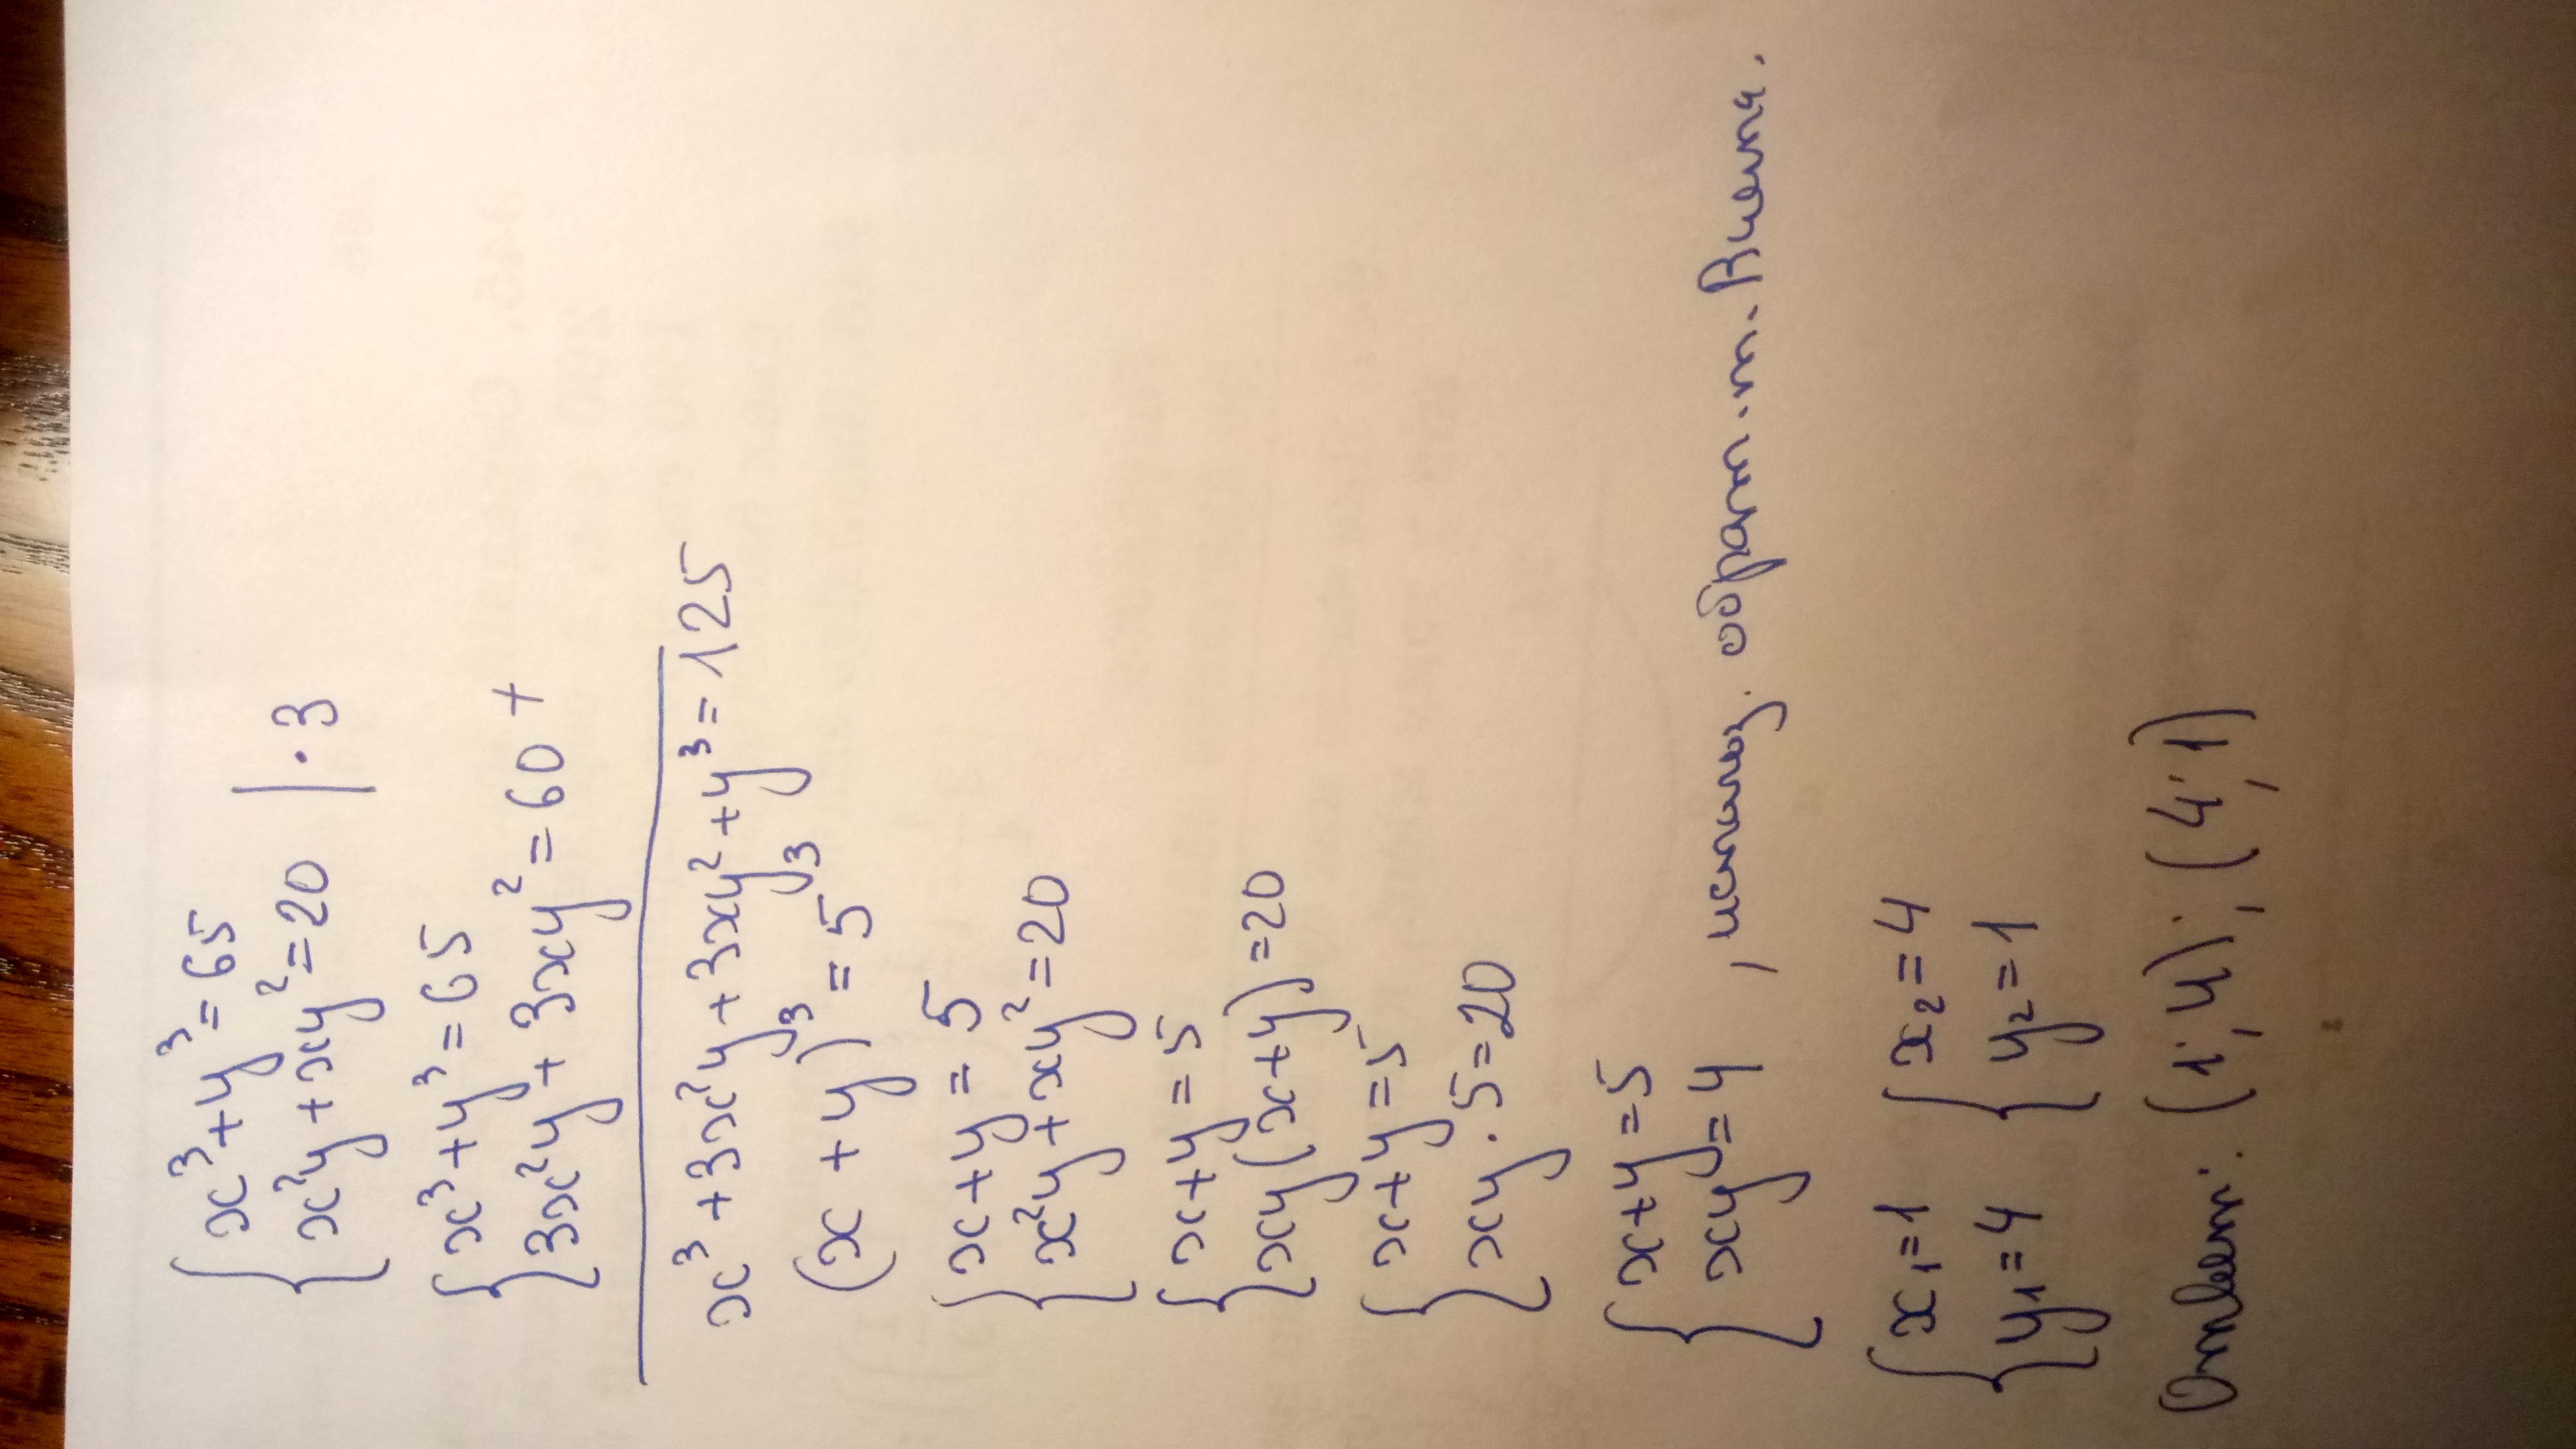 { x³+y³=65
{ x²y+xy²=20 |·3
{ x³+y³=65
{ 3x²y+3xy²=60 +
x³+3x²y+3xy²+y³=125
(x+y)³=5³
{ x+y=5
{ x²y+xy²=20
{ x+y=5
{ xy(x+y)=20
{ x+y=5
{ xy·5=20
{ x+y=5
{ xy=4 , использ. обратн. т. Виета.
{ x₁=1 { x₂=4
{ y₁=4 { y₂=1
Ответ: (1;4); (4;1)